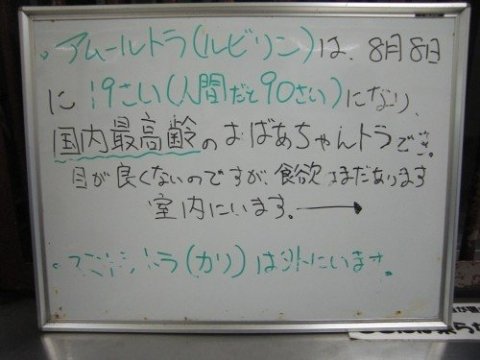 ・アムールトラ(ルビリン)は、8月8日
に19さい(人間だと90さい)になり、
国内最高齢のおばあちゃんトラでず。
目が良くないのですが、食欲はまだあります
室内にいます。→
トラ(カリ)は外にいます。